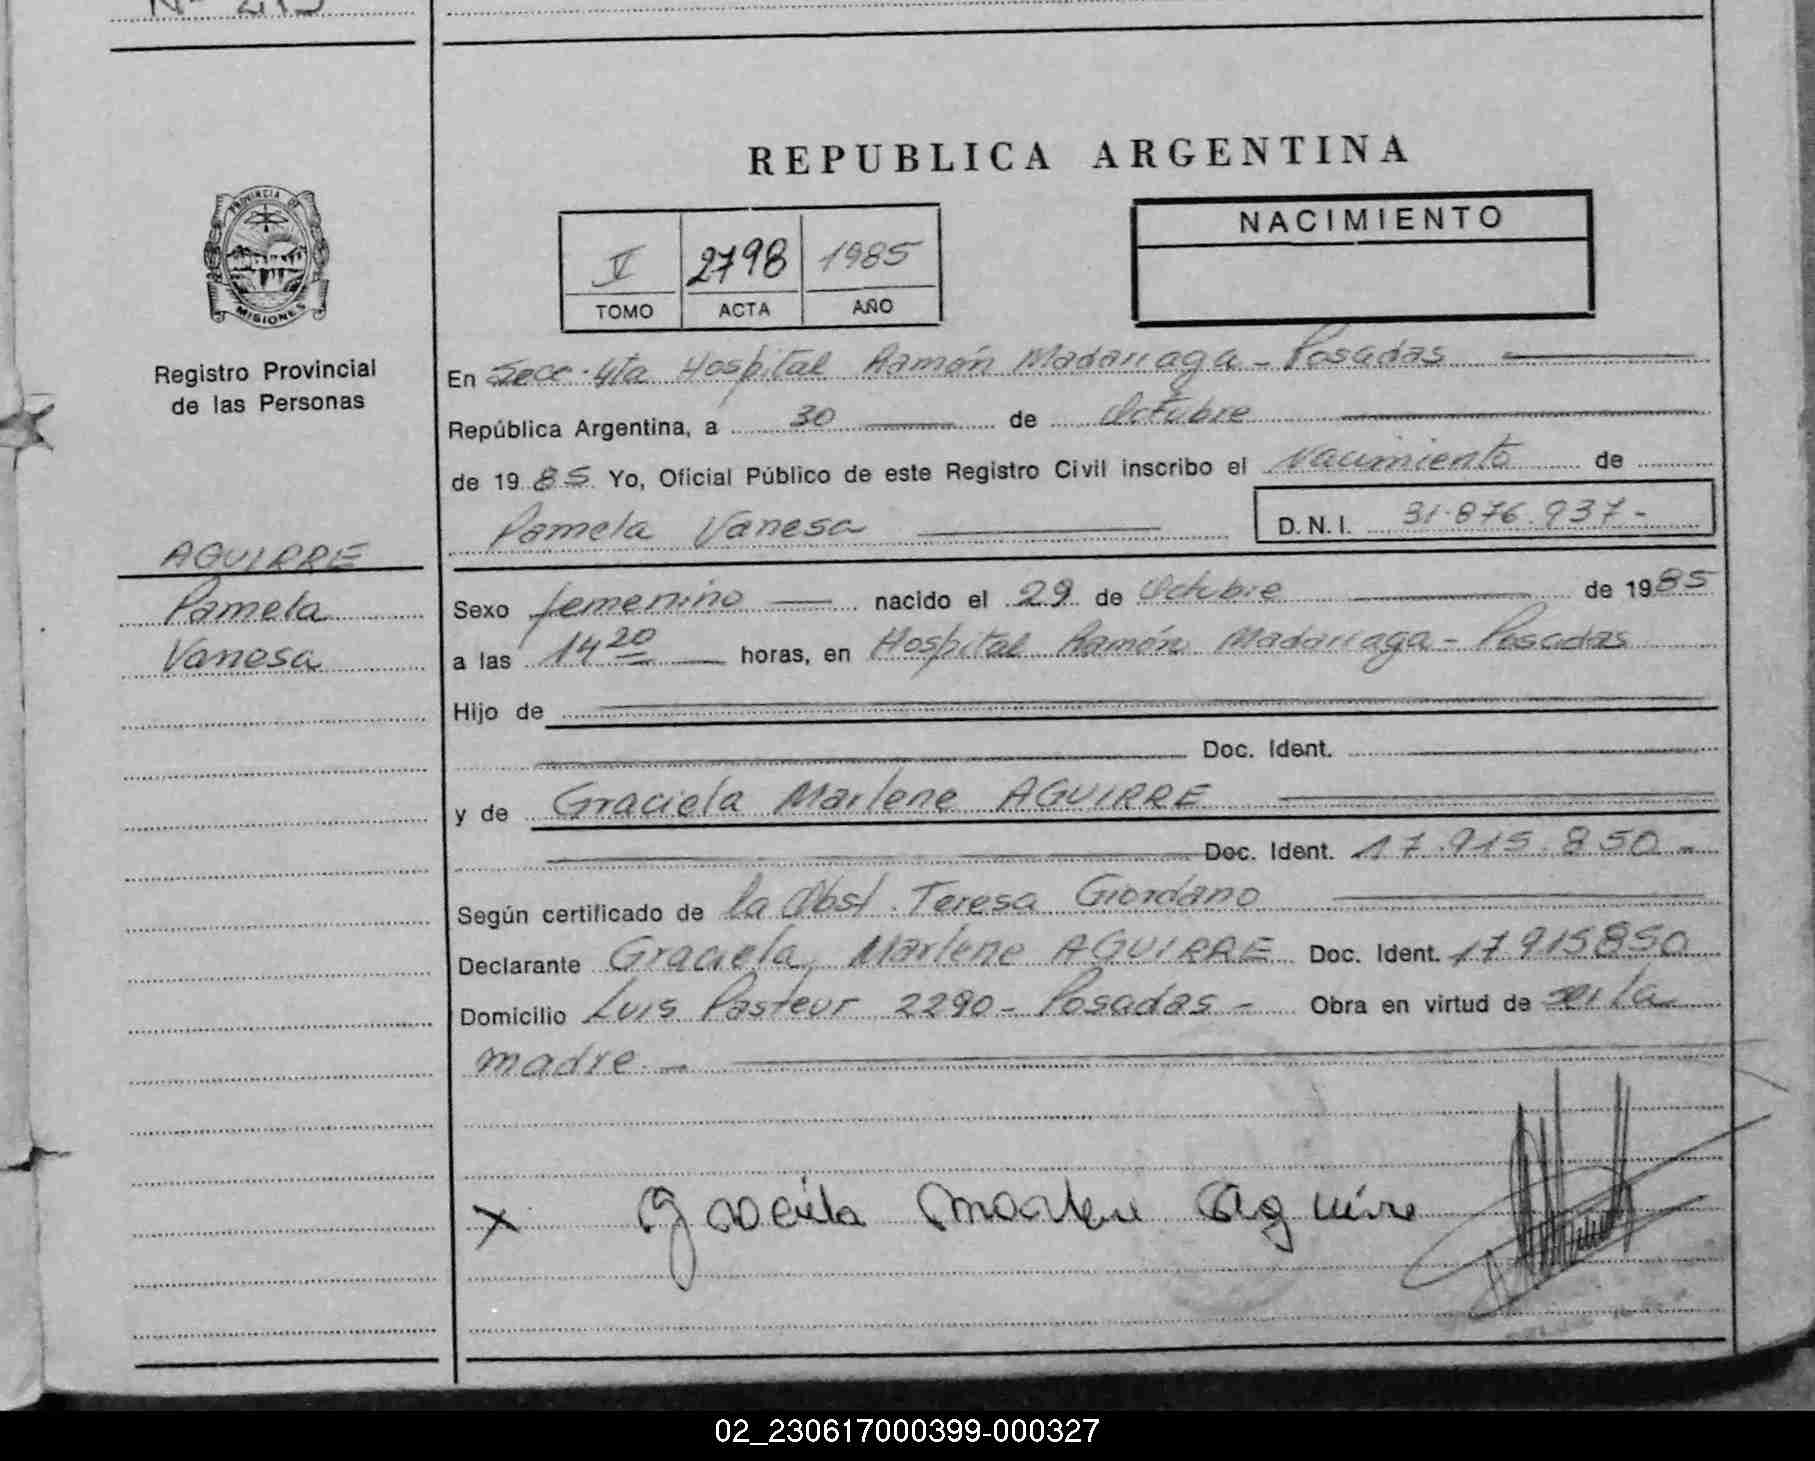 Nº 2795
REPUBLICA ARGENTINA
PROVINCIA DE
MISIONES
V 2798 1985
TOMO ACTA AÑO
NACIMIENTO
Registro Provincial
de las Personas
En Secc. 4ta Hospital Ramón Madariaga - Posadas
República Argentina, a 30 de Octubre
de 1985 Yo, Oficial Público de este Registro Civil inscribo el Nacimiento de
Pamela Vanesa D.N.I. 31.876.937-
AGUIRRE
Pamela
Vanesa
Sexo femenino nacido el 29 de Octubre de 1985
a las 14 20 horas, en Hospital Ramón Madariaga - Posadas
Hijo de
Doc. Ident.
y de Graciela Marlene AGUIRRE
Doc. Ident. 17.915.850-
Según certificado de la Obst. Teresa Giordano
Declarante Graciela Marlene AGUIRRE Doc. Ident. 17915850
Domicilio Luis Pasteur 2290 - Posadas - Obra en virtud de ser la
madre.-
x Graciela Marlene Aguirre
02_230617000399-000327